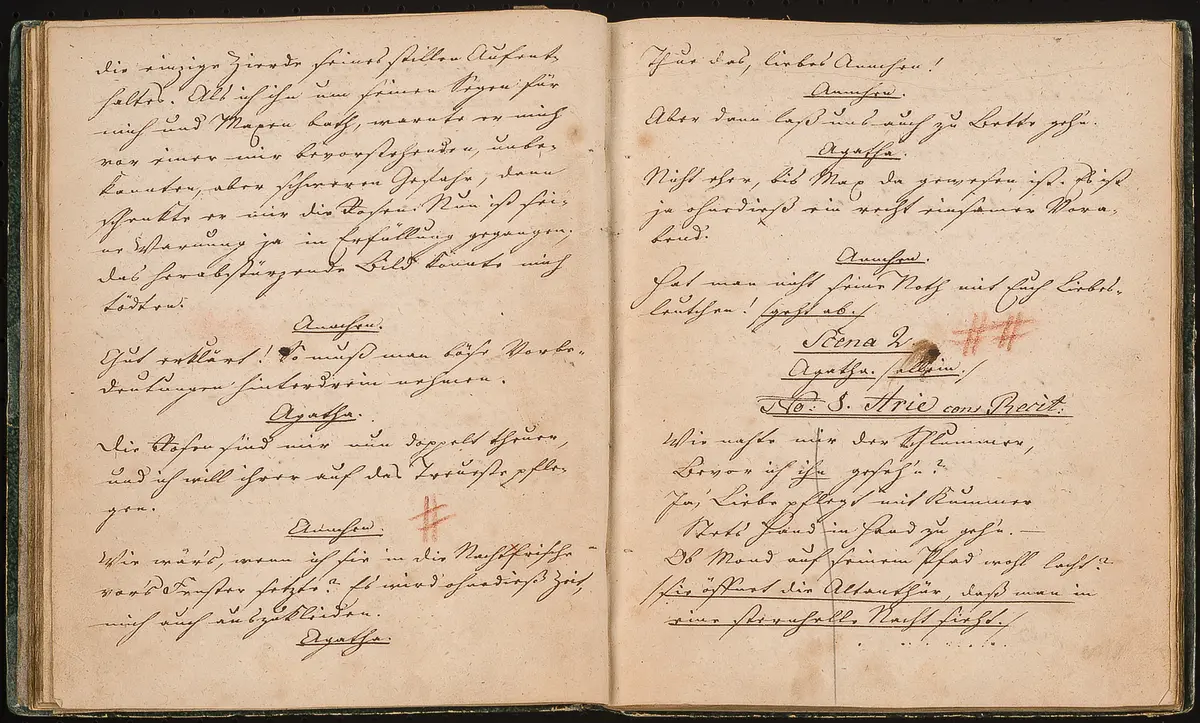 die einzige Zierde seines stillen Aufent-
haltes. Als ich ihn um seinen Segen für
mich und Maxen bath, warnte er mich
vor einer mir bevorstehenden, unbe-
kannten, aber schweren Gefahr; dann
schenkte er mir die Rosen. Nun ist sei-
ne Warnung ja in Erfüllung gegangen,
das herabstürzende Bild konnte mich
tödten.
Annchen.
Gut erklärt! So muß man böse Vorbe-
deutungen hinterdrein nehmen.
Agatha.
Die Rosen sind mir nun doppelt theuer,
und ich will ihrer auf das Treueste pfle-
gen.
Annchen.
Wie wär's, wenn ich sie in die Nachtfrische
vor's Fenster setzte? Es wird ohnedieß Zeit,
mich auch auszukleiden.
Agatha.
Thue das, liebes Annchen!
Annchen.
Aber dann laß uns auch zu Bette geh'n.
Agatha.
Nicht eher, bis Max da gewesen ist. Es ist
ja ohnedieß ein recht einsamer Vora-
bend.
Annchen.
Hat man nicht seine Noth mit Euch Liebes-
leutchen! /geht ab./
Scena 2.
Agatha. /allein./
No: 8. Arie con Recit:
Wie nahte mir der Schlummer,
Bevor ich ihn geseh'n?
Ja, Liebe pflegt mit Kummer
Stets Hand in Hand zu geh'n. —
Ob Mond auf seinem Pfad wohl lacht?
/sie öffnet die Altanthür, daß man in
eine sternhelle Nacht sieht./